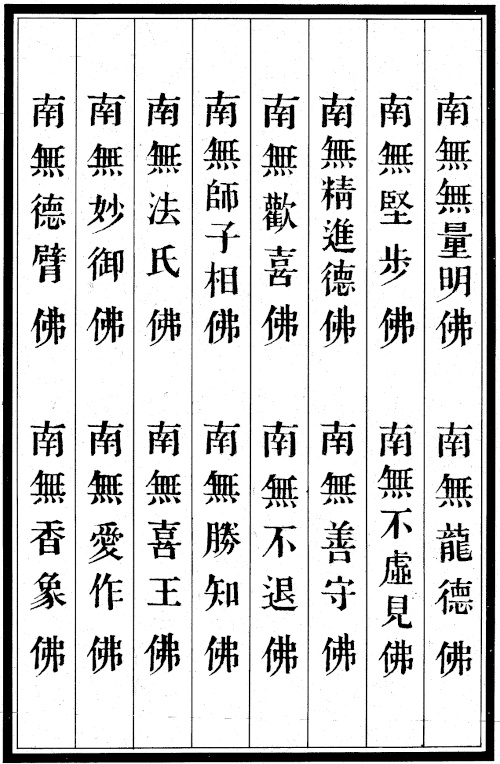 南無無量明佛　南無龍德佛
南無堅步佛　南無不虛見佛
南無精進德佛　南無善守佛
南無歡喜佛　南無不退佛
南無師子相佛　南無勝知佛
南無法氏佛　南無喜王佛
南無妙御佛　南無愛作佛
南無德臂佛　南無香象佛